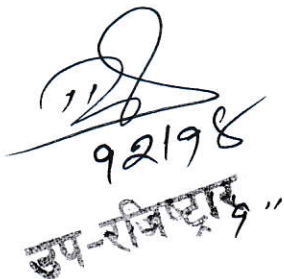 १२।१४
उप-रजिष्ट्रार